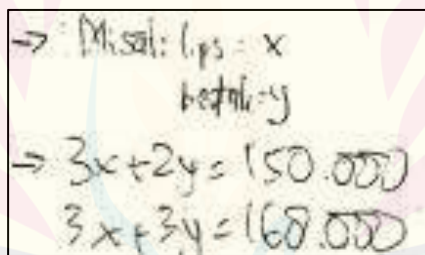 → Misal: lips = x
bedak = y
→ 3x + 2y = 150.000
3x + 3y = 168.000